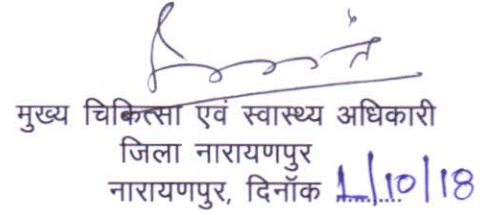 मुख्य चिकित्सा एवं स्वास्थ्य अधिकारी
जिला नारायणपुर
नारायणपुर, दिनॉक 1/10/18